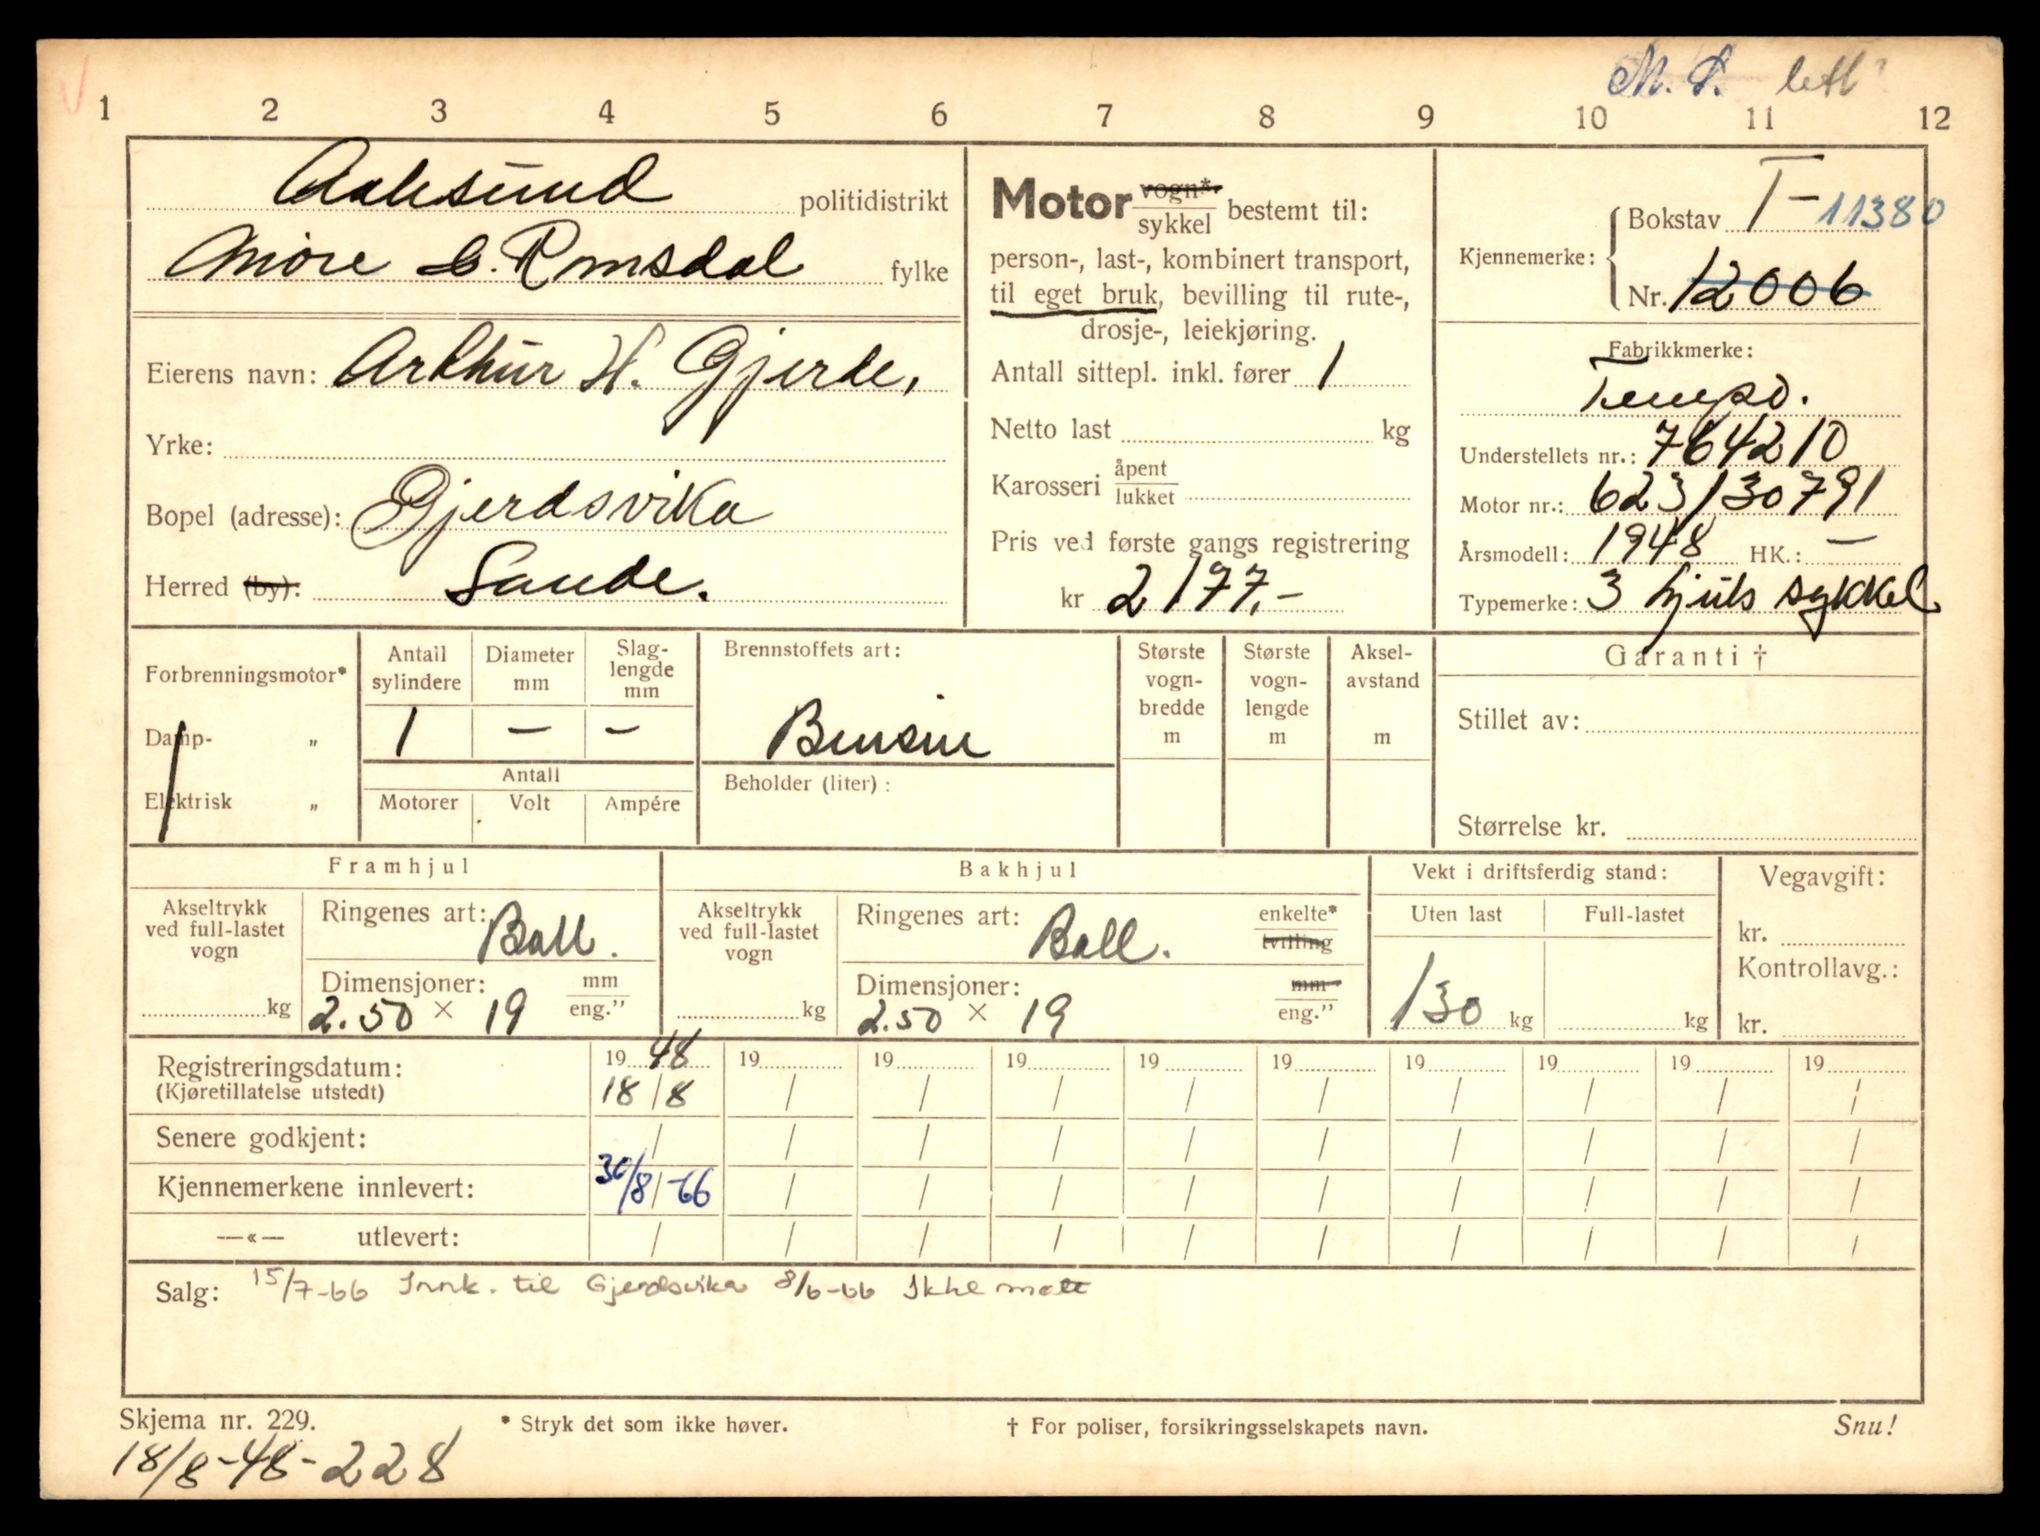 M. S. lett
1 2 3 4 5 6 7 8 9 10 11 12
Aalesund politidistrikt
Møre & Romsdal fylke
Eierens navn: Arthur H. Gjerde,
Yrke:
Bopel (adresse): Gjerdsvika
Herred (by): Sande.
Motor vogn*
sykkel bestemt til:
person-, last-, kombinert transport,
til eget bruk, bevilling til rute-,
drosje-, leiekjøring.
Antall sittepl. inkl. fører 1
Netto last kg
Karosseri åpent
lukket
Pris ved første gangs registrering
kr 2177,-
Kjennemerke: Bokstav T-11380
Nr. 12006
Fabrikkmerke:
Tempo.
Understellets nr.: 764210
Motor nr.: 623/30791
Årsmodell: 1948 HK.: —
Typemerke: 3 hjuls sykkel
Forbrenningsmotor*
Damp- „
Elektrisk „
Antall sylindere
1
Diameter mm
—
Slaglengde mm
—
Antall
Motorer Volt Ampére
Brennstoffets art:
Bensin
Beholder (liter):
Største vognbredde m
Største vognlengde m
Akselavstand m
Garanti †
Stillet av:
Størrelse kr.
Framhjul
Akseltrykk
ved full-lastet
vogn
kg
Ringenes art: Ball.
Dimensjoner: mm
2.50 × 19 eng."
Bakhjul
Akseltrykk
ved full-lastet
vogn
kg
Ringenes art: Ball. enkelte*
tvilling
Dimensjoner: mm
2.50 × 19 eng."
Vekt i driftsferdig stand:
Uten last Full-lastet
130 kg kg
Vegavgift:
kr.
Kontrollavg.:
kr.
Registreringsdatum: 1948 19 19 19 19 19 19 19 19 19
(Kjøretillatelse utstedt) 18/8 / / / / / / / / /
Senere godkjent: / / / / / / / / / /
Kjennemerkene innlevert: 30/8/-66 / / / / / / / / /
—«— utlevert: / / / / / / / / / /
Salg: 15/7-66 Innk. til Gjerdsvika 8/6-66 Ikke møtt
Skjema nr. 229.
* Stryk det som ikke høver.
† For poliser, forsikringsselskapets navn.
Snu!
18/8-48-228